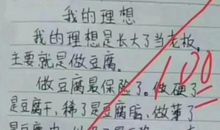 我的理想
我的理想是长大了当老板，
主要就是做豆腐。
做豆腐最保险了。做硬了
是豆腐干，稀了是豆腐脑，做薄了
100